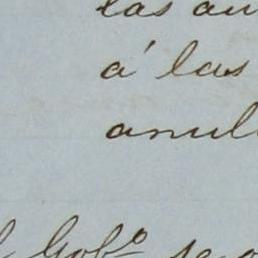 las au
á las
anul
l Gobº se o